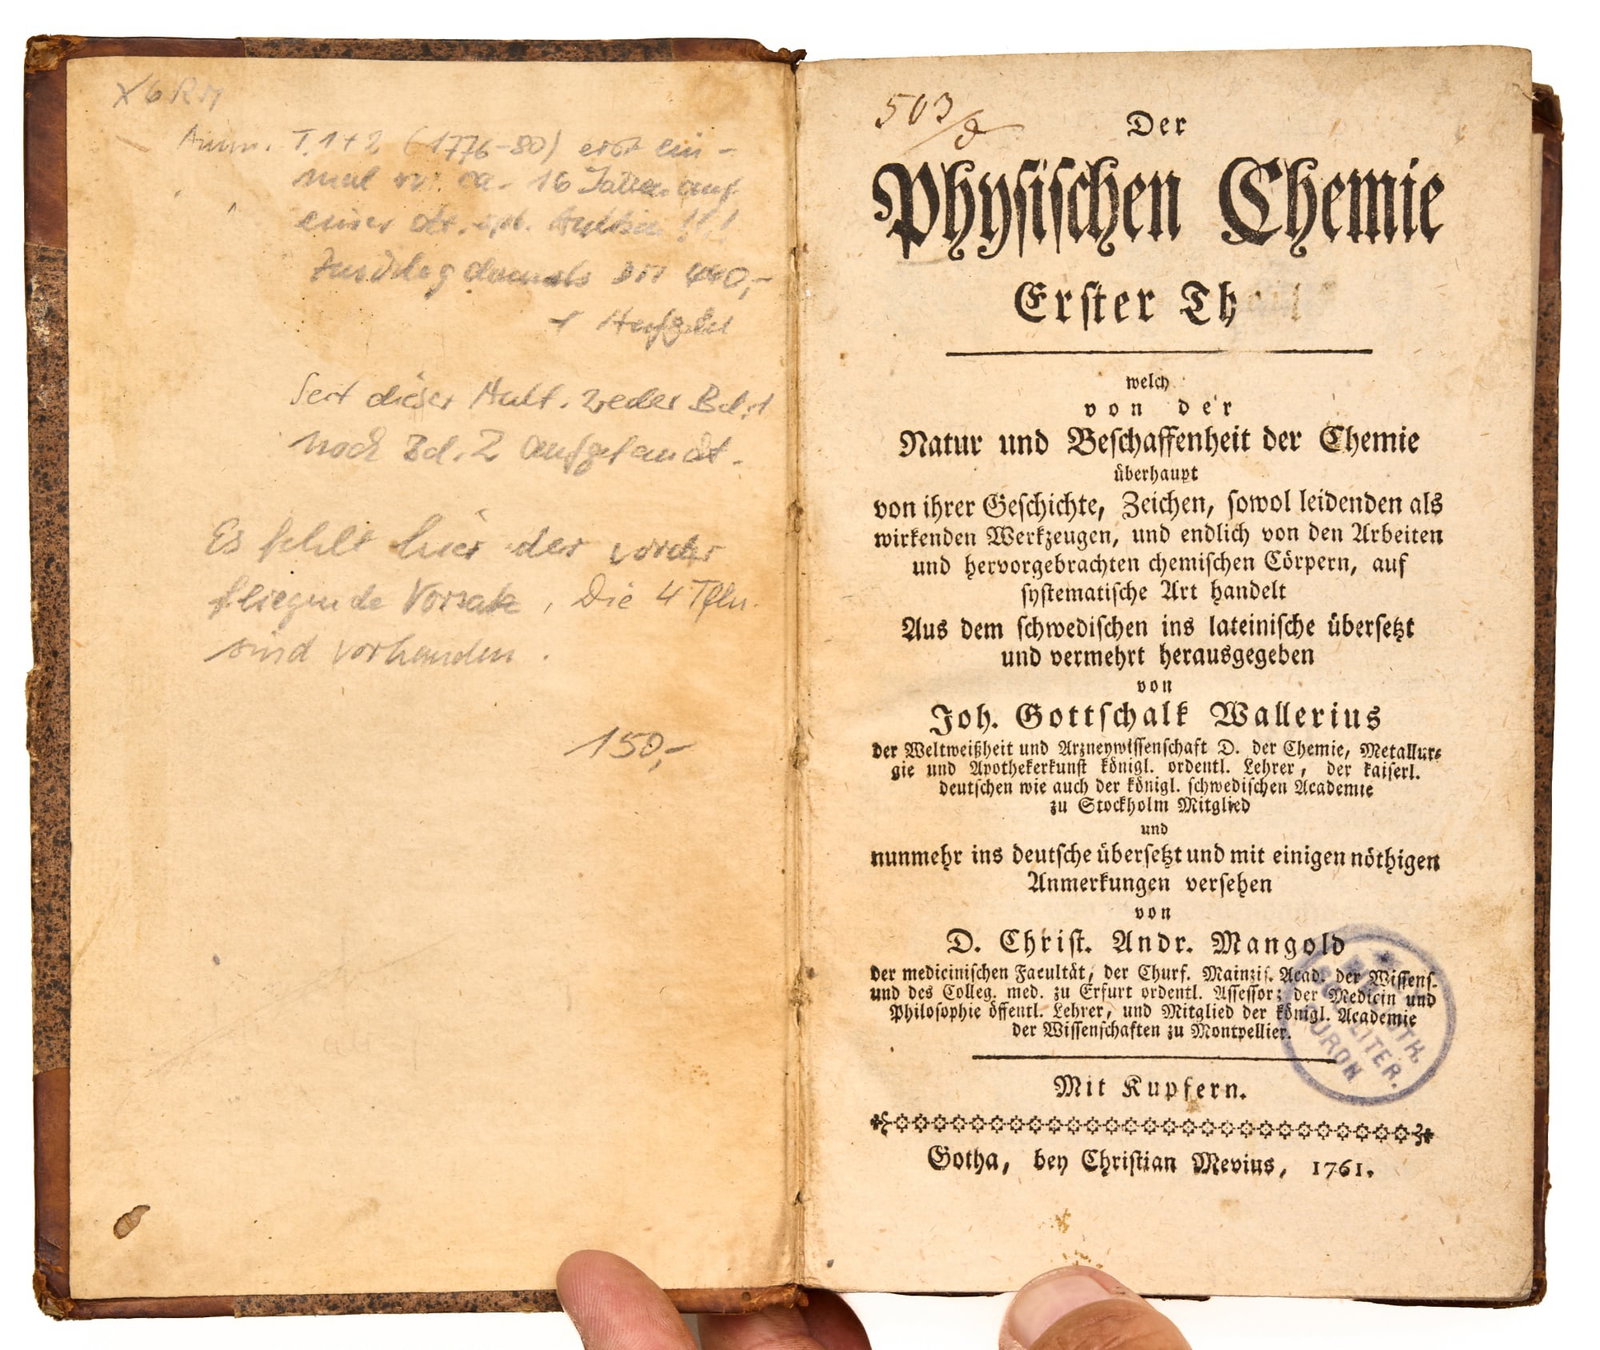 T. 1 + 2 (1776-80) erst ein-
mal vor ca. 16 Jahren auf
einer
Zuschlag damals DM 440,-
+ Aufgeld
Seit dieser Aukt. weder Bd. 1
noch Bd. 2 aufgetaucht.
Es fehlt hier der vorder
fliegende Vorsatz, Die 4 Tfln.
sind vorhanden.
150,-
503
Der
Physischen Chemie
Erster Th
welch
von der
Natur und Beschaffenheit der Chemie
überhaupt
von ihrer Geschichte, Zeichen, sowol leidenden als
wirkenden Werkzeugen, und endlich von den Arbeiten
und hervorgebrachten chemischen Cörpern, auf
systematische Art handelt
Aus dem schwedischen ins lateinische übersetzt
und vermehrt herausgegeben
von
Joh. Gottschalk Wallerius
der Weltweißheit und Arzneywissenschaft D. der Chemie, Metallur-
gie und Apothekerkunst königl. ordentl. Lehrer, der kaiserl.
deutschen wie auch der königl. schwedischen Academie
zu Stockholm Mitglied
und
nunmehr ins deutsche übersetzt und mit einigen nöthigen
Anmerkungen versehen
von
D. Christ. Andr. Mangold
der medicinischen Facultät, der Churf. Mainzis. Acad. der Wissens.
und des Colleg. med. zu Erfurt ordentl. Assessor; der Medicin und
Philosophie öffentl. Lehrer, und Mitglied der königl. Academie
der Wissenschaften zu Montpellier.
Mit Kupfern.
Gotha, bey Christian Mevius, 1761.